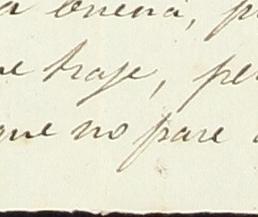 buena, p
traje, per
que no pare